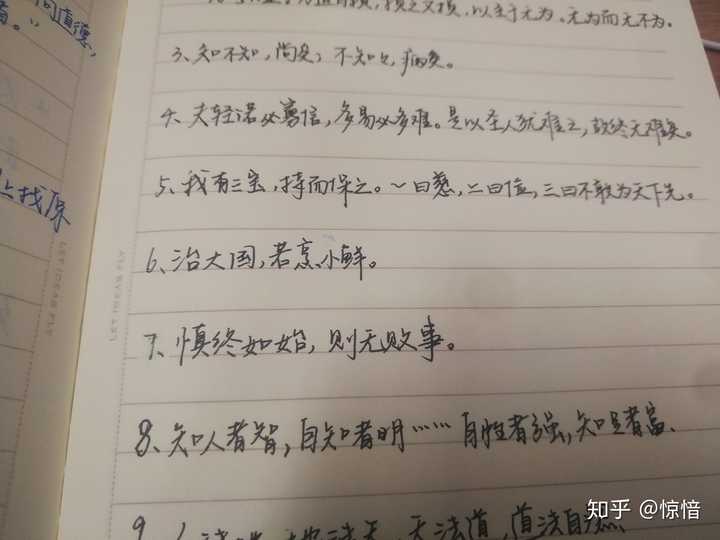 道德,
者。”
上找原
LET IDEAS FLY
LET IDEAS FLY
日损,损之又损,以至于无为、无为而无不为.
3、知不知,尚矣;不知々,病矣。
4、夫轻诺必寡信,多易必多难。是以圣人犹难之,故终无难矣。
5、我有三宝,持而保之。一曰慈,二曰俭,三曰不敢为天下先。
6、治大国,若烹小鲜。
7、慎终如始,则无败事。
8、知人者智,自知者明……自胜者强,知足者富、
9、人法地,地法天,天法道,道法自然
知乎 @惊愔